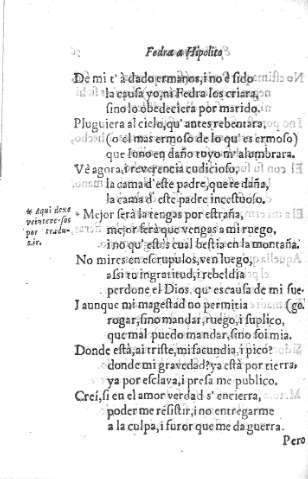 Fedra a Hipolito
De mi t' à dado ermanos, i no è sido
la causa yo, ni Fedra los criara,
sino lo obedeciera por marido.
Pluguiera al cielo, qu' antes rebentara,
(o el mas ermoso de lo qu' es ermoso)
que Iuno en daño tuyo m' alumbrara.
Vè agora, i reverencia cudicioso,
la cama d' este padre, que te daña,
la cama d' este padre incestuoso.
* Aqui dexa
veintete-sos
por tradu-
zir.
* Mejor serà la tengas por estraña,
mejor serà que vengas a mi ruego,
i no qu' estès cual bestia en la montaña.
No mires en escrupulos, ven luego,
assi tu ingratitud, i rebeldia
perdone el Dios. qu' es causa de mi fue-
I aunque mi magestad no permitia (go.
rogar, sino mandar, ruego, i suplico,
que mal puedo mandar, sino soi mia.
Donde està, ai triste, mi facundia, i pico?
donde mi gravedad? ya està por tierra,
ya por esclava, i presa me publico.
Crei, si en el amor verdad s' encierra,
poder me resistir, i no entregarme
a la culpa, i furor que me da guerra.
Pero